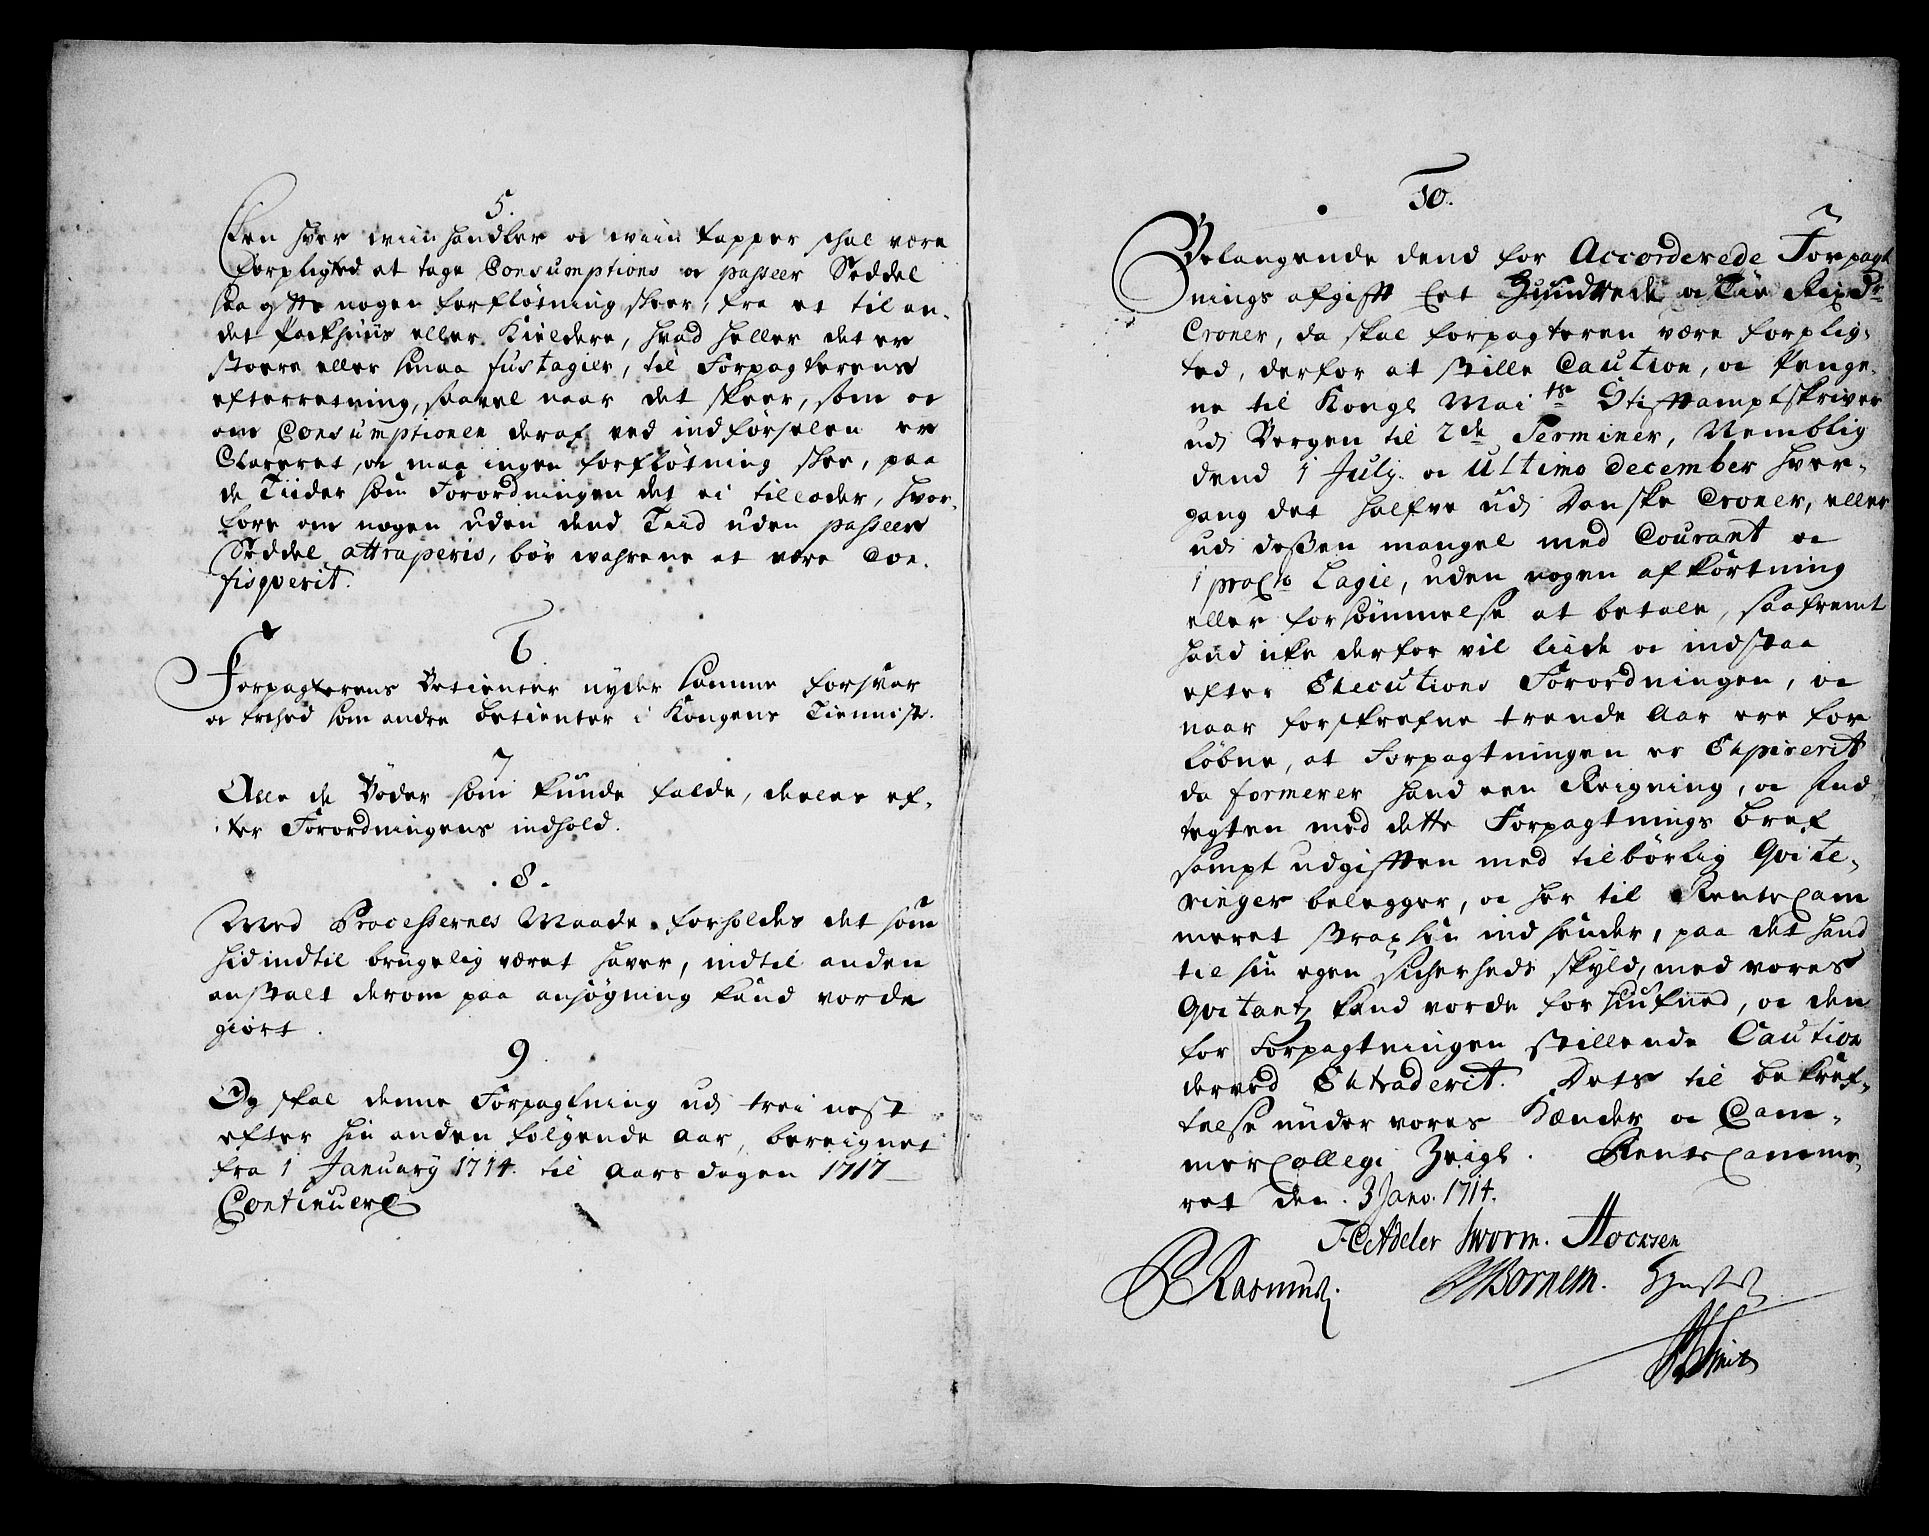 5.
Een hver wiin handler oc wiin tapper schal være
forpligted at tage Consumptions oc passeer Seddel
saa offte nogen forfløtning skeer, fra et til an-
det Packhuus eller Kieldere, hvad heller det er
stoere eller smaa fustagier, til Forpagterens
efterretning, saavel naar det skeer, som oc
om Consumptionen deraf ved indførselen er
Clareret, oc maa ingen forfløtning skee, paa
de Tiider som Forordningen det ei tillader, hvor-
fore om nogen uden dend Tiid uden passeer
Seddel attraperis, bør wahrene at være Con-
fisqverit.
6
Forpagterens Betienter nyder samme forsvar
oc frihed som andre betienter i Kongens Tienniste.
7
Alle de Bøder som kunde falde, deeles ef-
ter Forordningens indhold.
8.
Med Processernes Maade forholdes det som
hidindtil brugelig været haver, indtil anden
anstalt derom paa ansøgning kand vorde
giort.
9
Og skal denne Forpagtning udi trei nest
efter hin anden følgende aar, bereignet
fra 1 January 1714. til aarsdagen 1717
Continuere
10.
Belangende dend for Accorderede Forpagt
nings afgifft Eet Hundrede oc Tie Rixdr
Croner, da skal forpagteren være forplig-
ted, derfor at stille Caution, oc Penge-
ne til Kongl Maits Stifftamptskriver
udi Bergen til 2de Terminer, Nemblig
dend 1 July. oc ultimo december hver-
gang det halfve udi Danske Croner, eller
udi deßen mangel med Courant oc
1 proCto Lagie, uden nogen afkortning
eller forsømmelse at betale, saafremt
hand icke derfor vil liide oc indstaa
efter Executions Forordningen, oc
naar forskrefne trende Aar ere for
løbne, at Forpagtningen er Expirerit
da formerer hand een Reigning, oc Ind
tegten med dette Forpagtnings bref
sampt udgifften med tilbørlig Qvite-
ringer belegger, oc her til RenteCam
meret strax hen indsender, paa det hand
til sin egen sicherheds skyld, med vores
Qvitantz kand vorde forsiufned, oc den
for Forpagtningen stillende Caution
derved Extraderit. Dets til bekref-
telse under vores Hænder oc Cam-
merCollegi Zeigl. RenteCamme-
ret den. 3 Jano. 1714.
F. C. Adeler Worm. Stocksen
Rasmus. Bornem.